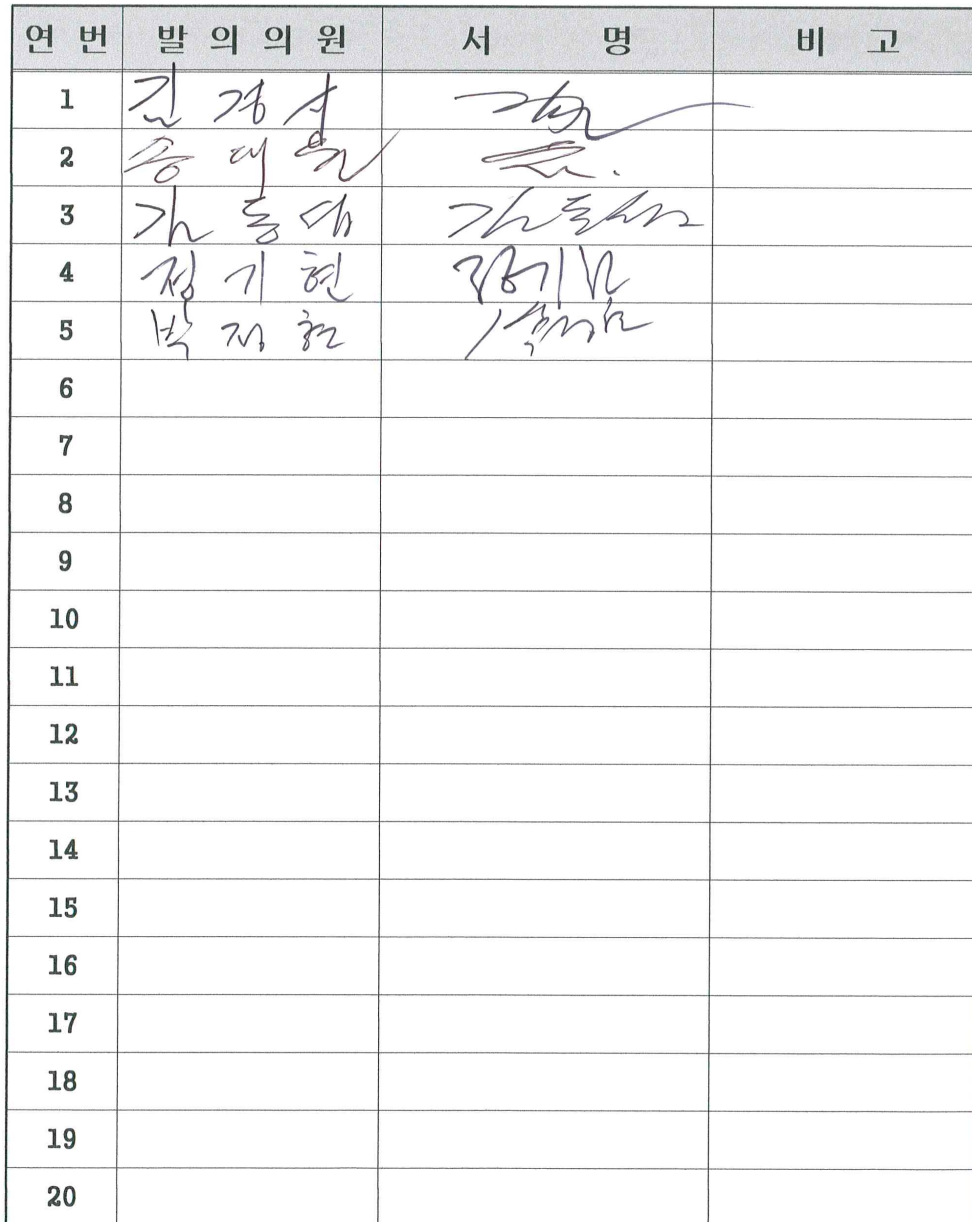 연 번 발 의 의 원 서 명 비 고
1 김 경
2 송 대
3 김 동
4 정 기 현 정기현
5 박 정 현 박정현
6
7
8
9
10
11
12
13
14
15
16
17
18
19
20